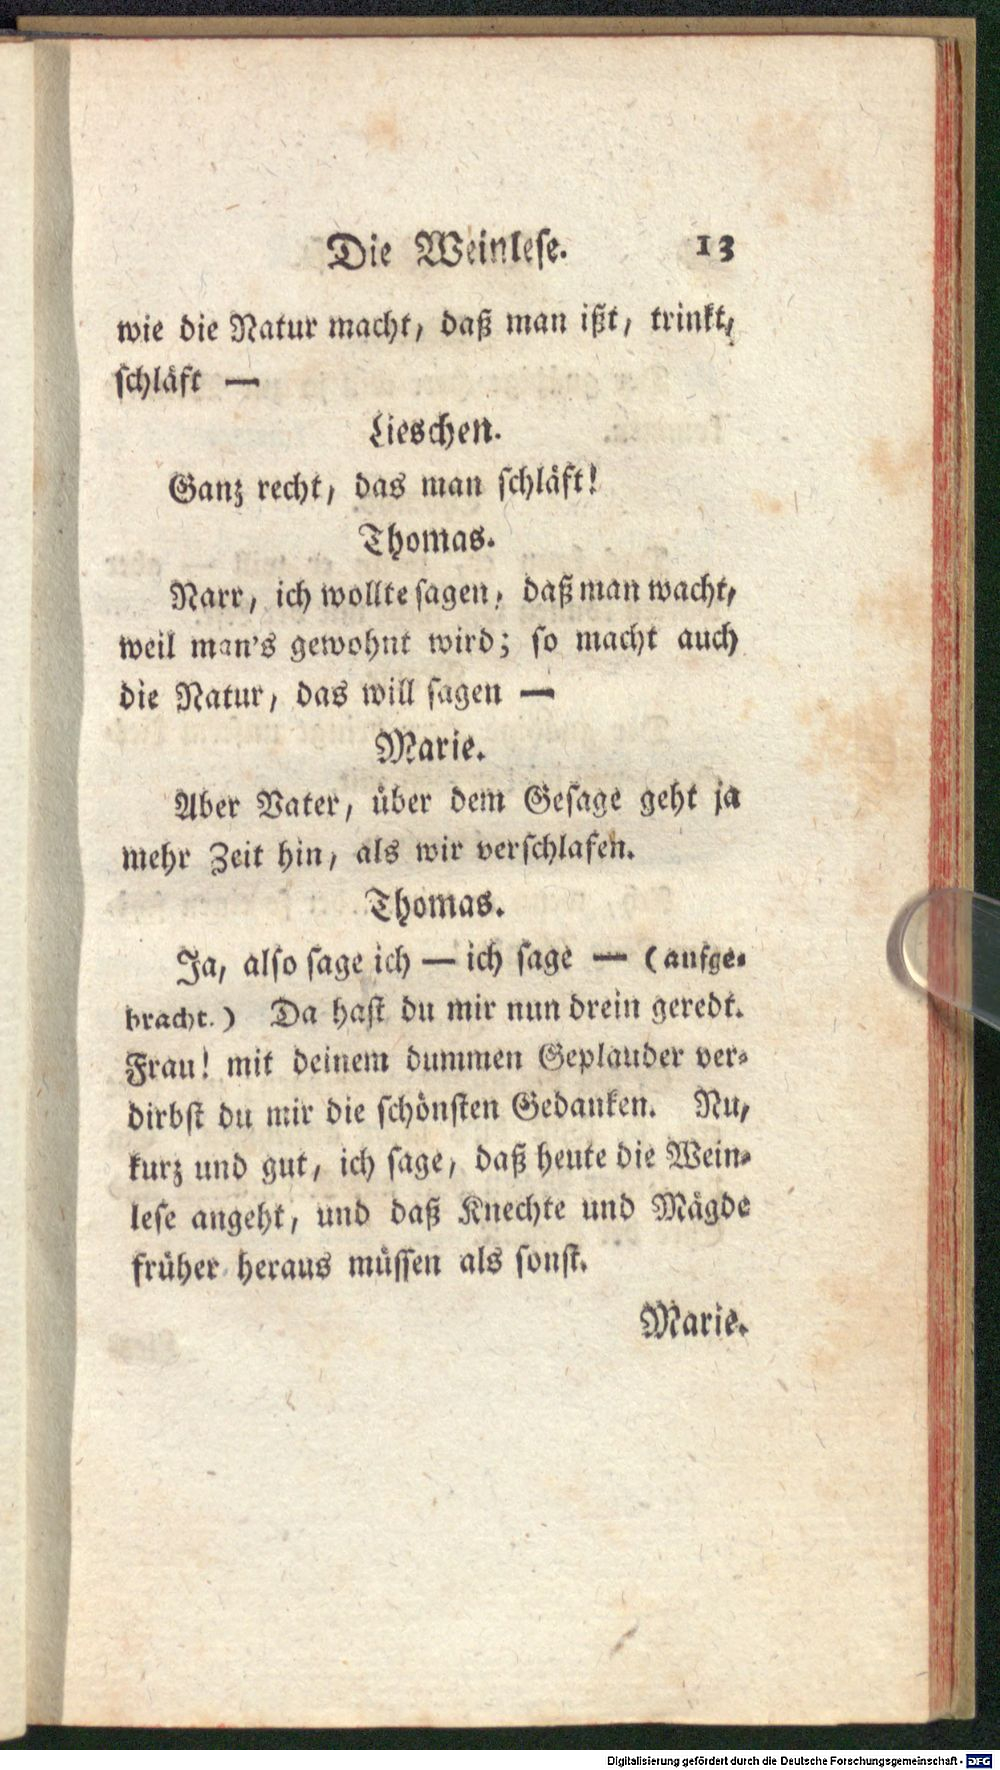 Die Weinlese. 13
wie die Natur macht, daß man ißt, trinkt,
schläft —
Lieschen.
Ganz recht, das man schläft!
Thomas.
Narr, ich wollte sagen, daß man wacht,
weil man's gewohnt wird; so macht auch
die Natur, das will sagen —
Marie.
Aber Vater, über dem Gesage geht ja
mehr Zeit hin, als wir verschlafen.
Thomas.
Ja, also sage ich — ich sage — (aufge-
bracht.) Da hast du mir nun drein geredt.
Frau! mit deinem dummen Geplauder ver-
dirbst du mir die schönsten Gedanken. Nu,
kurz und gut, ich sage, daß heute die Wein-
lese angeht, und daß Knechte und Mägde
früher heraus müssen als sonst.
Marie.
Digitalisierung gefördert durch die Deutsche Forschungsgemeinschaft - DFG